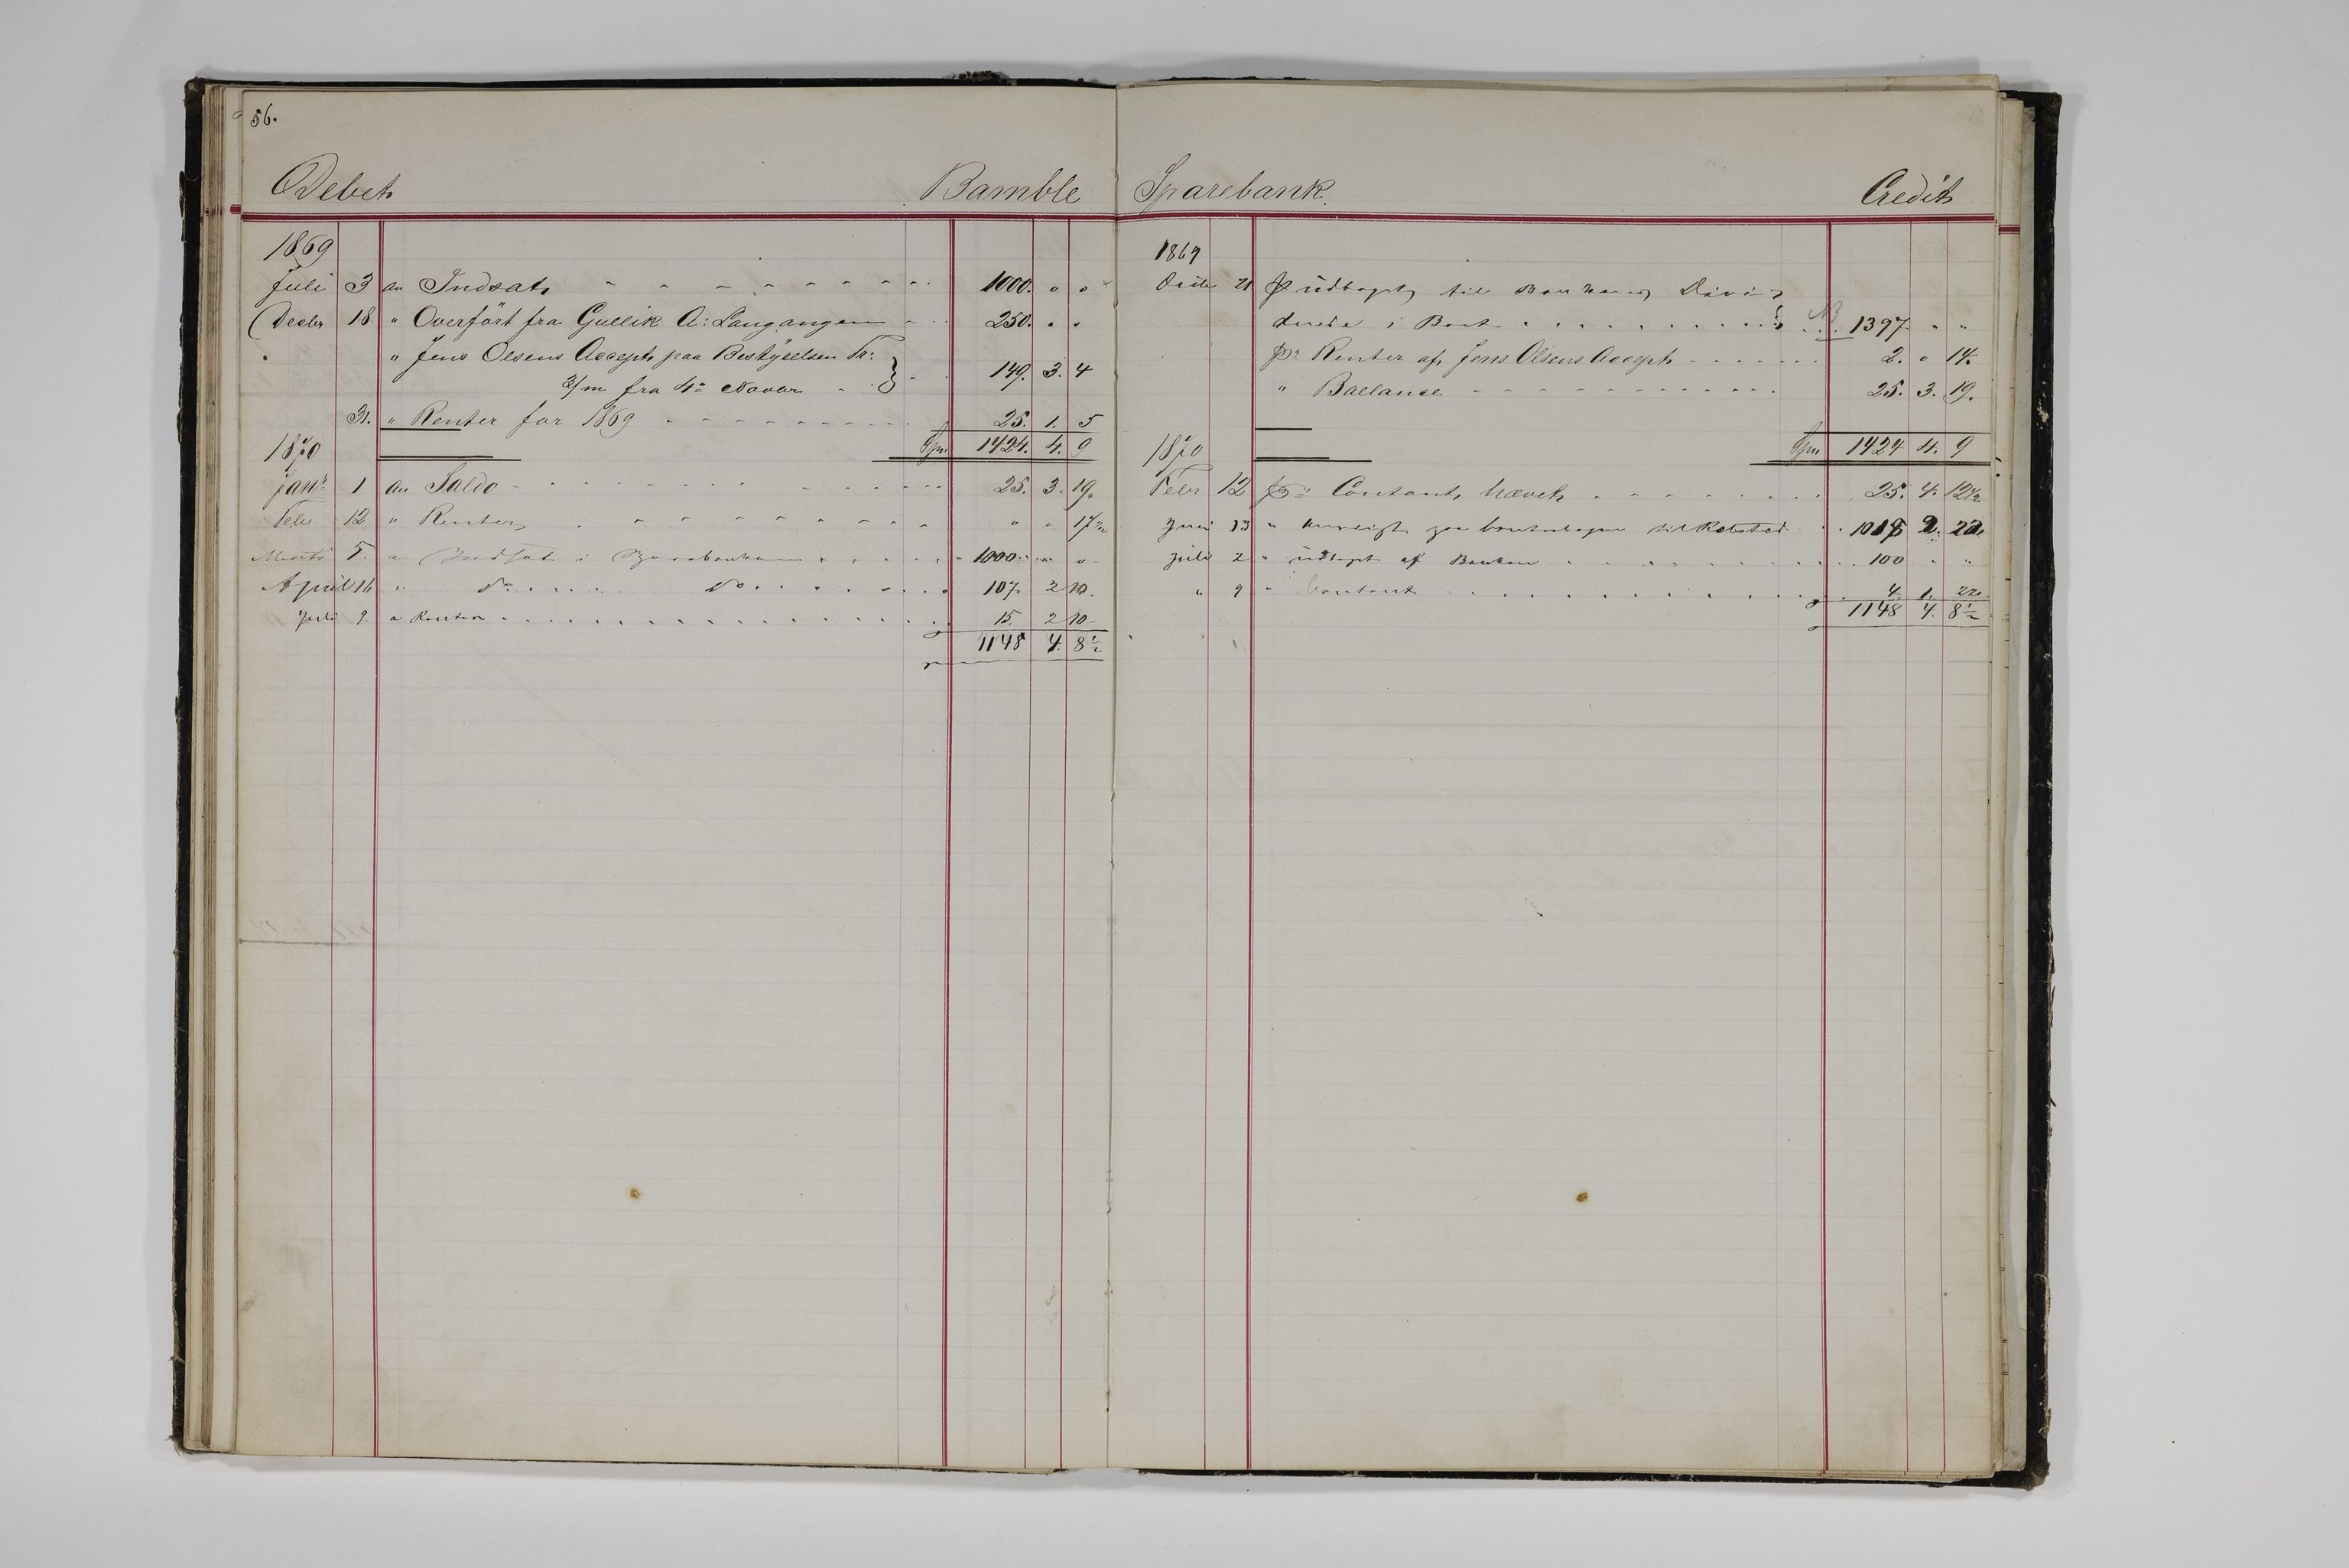 56.
Debet Bamble
1869
Juli 3 an Indsat 1000. " "
Decbr 18 " Overført fra Gullik A: Langangen 250. " "
" Jens Olsens Accept paa Bestyrelsen Tr:
3/m fra 4de Novbr 149. 3. 4
31. " Renter for 1869 25. 1. 5
Spm 1424. 4. 9
1870
Janr 1 an Saldo 25. 3. 19.
Febr 12 " Renter " " 17 1/2
Marts 5. " Indsat i Sparebanken 1000 " "
April 16 " Do Do 107. 2 10.
Juli 9. " Renter 15. 2 10
1148 4. 8 1/2
Sparebank. Credit
1869
21 pr udtagt til Bankens Divi
dende i Bank NB 1397 " "
pr Renter af Jens Olsens Accept 2. " 14.
" Ballance 25. 3. 19.
Spm 1424 4. 9
1870
Febr 12 pr Contant hævet 25. 4. 12 1/2
Juni 13 " til 22
Juli 2 " udtagt af Banken 100 " "
" 9 " Contant 4. 1. 22.
1148 4. 8 1/2